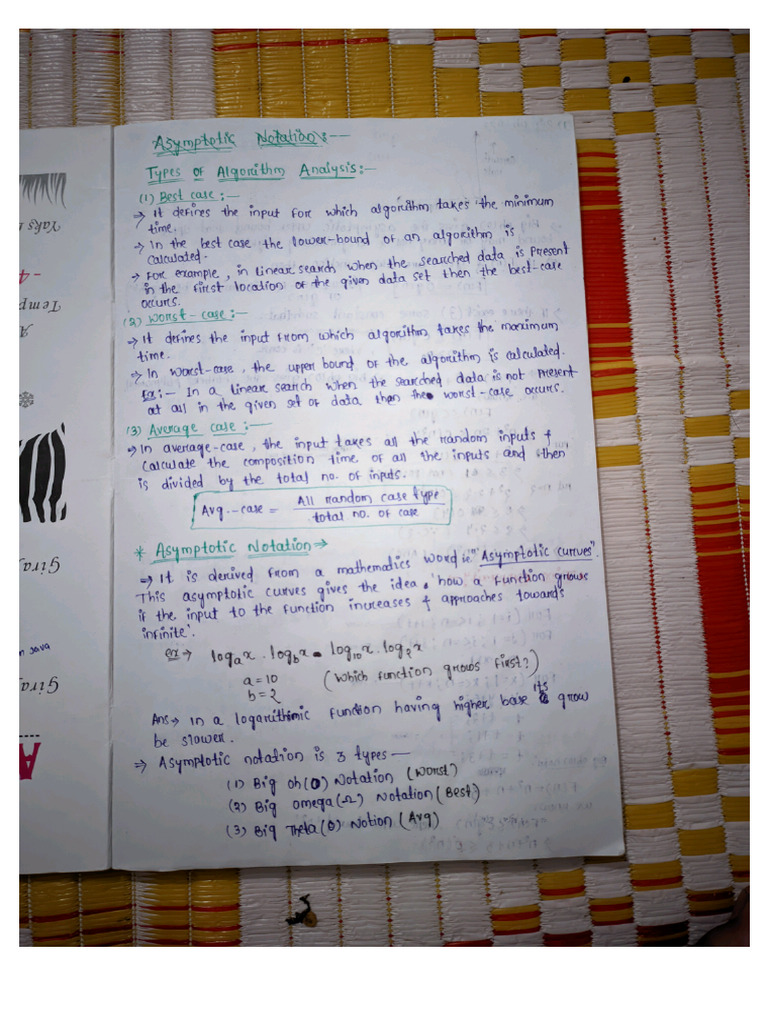 Asymptotic Notation:--
Types of Algorithm Analysis:-
(1) Best case:-
→ It defines the input for which algorithm takes the minimum
time.
→ In the best case the lower-bound of an algorithm is
calculated.
→ For example, in linear search when the searched data is present
in the first location of the given data set then the best-case
occurs.
(2) Worst-case:-
→ It defines the input from which algorithm takes the maximum
time.
→ In worst-case, the upper bound of the algorithm is calculated.
Ex:- In a linear search when the searched data is not present
at all in the given set of data then the worst-case occurs.
(3) Average case:-
→ In average-case, the input takes all the random inputs &
calculate the composition time of all the inputs and then
is divided by the total no. of inputs.
Avg.-case = All random case type
total no. of case
* Asymptotic Notation →
→ It is derived from a mathematics word i.e "Asymptotic curves".
This asymptotic curves gives the idea 'how a function grows
if the input to the function increases & approaches towards
infinite'.
ex → logₐx . log_b x log₁₀x . log₂x
a = 10 (which function grows first?)
b = 2
Ans → In a logarithmic function having higher base its grow
be slower.
⇒ Asymptotic notation is 3 types —
(1) Big oh(O) Notation (Worst)
(2) Big omega(Ω) Notation (Best)
(3) Big Theta(θ) Notion (Avg)
Yaks
Temp
Gira
Java
Gira
A